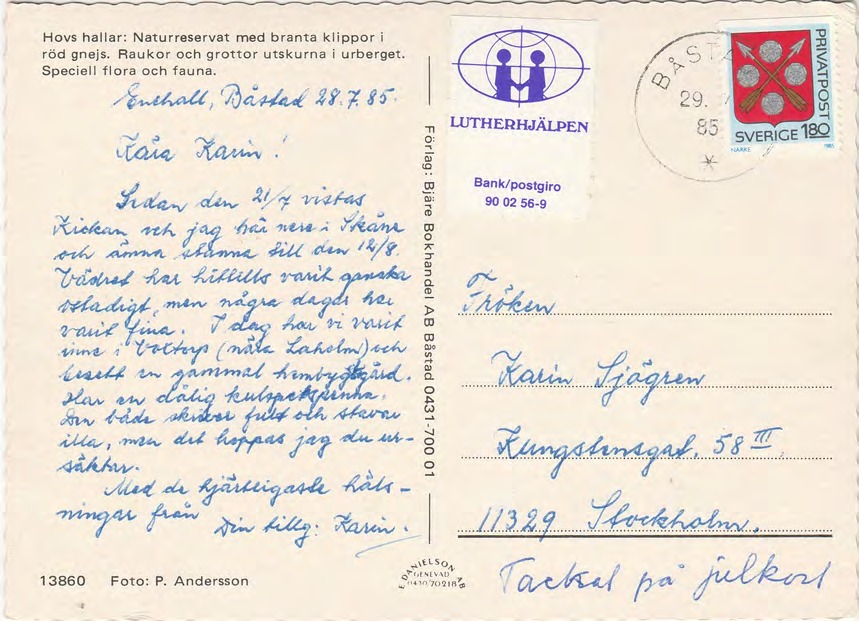 Hovs hallar: Naturreservat med branta klippor i
röd gnejs. Raukor och grottor utskurna i urberget.
Speciell flora och fauna.
Båstad 28.7.85.
Kära Karin!
Sedan den 21/7 vistas
Kickan och jag här nere i Skåne
och ämna stanna till den 12/8.
Vädret har hittills varit ganska
ostadigt, men några dagar har
varit fina. I dag har vi varit
inne i Voltorp (nära Laholm) och
besett en gammal hembygdsgård.
Har en dålig kulspetspenna.
Den både skriver fult och stavar
illa, men det hoppas jag du ur-
säktar.
Med de hjärteligaste häls-
ningar från
Din tillg: Karin.
13860 Foto: P. Andersson
Förlag: Bjäre Bokhandel AB Båstad 0431-700 01
E. DANIELSON AB
GENEVAD
0430/70218
LUTHERHJÄLPEN
Bank/postgiro
90 02 56-9
BÅSTA
29. 7
85
PRIVATPOST
SVERIGE 180
NÄRKE 1985
Fröken
Karin Sjögren
Kungstensgat. 58 III
11329 Stockholm.
Tacksal på julkort